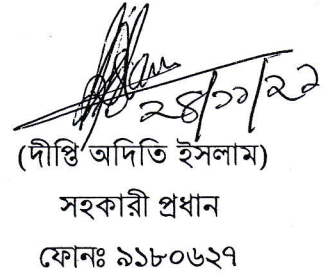 ২৪/১১/২২
(দীপ্তি অদিতি ইসলাম)
সহকারী প্রধান
ফোনঃ ৯১৮০৬২৭